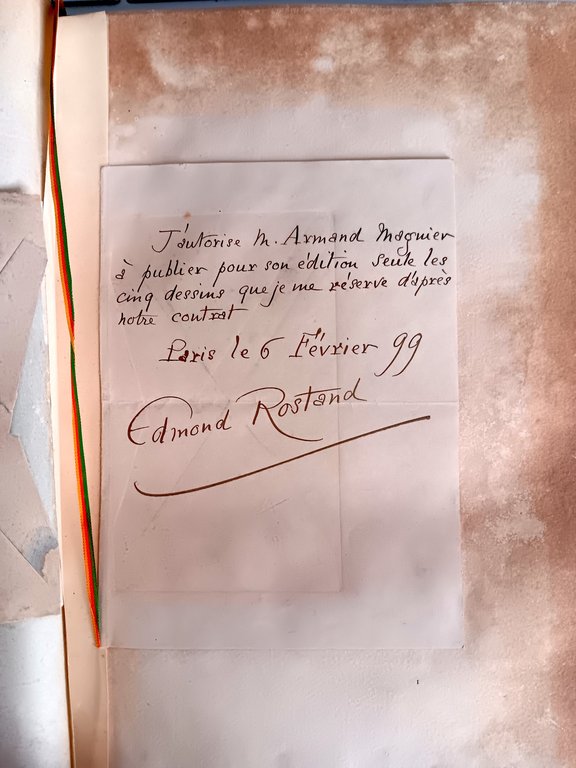 J'autorise M. Armand Magnier
à publier pour son edition seule les
cinq dessins que je me réserve d'après
notre contrat
Paris le 6 Février 99
Edmond Rostand